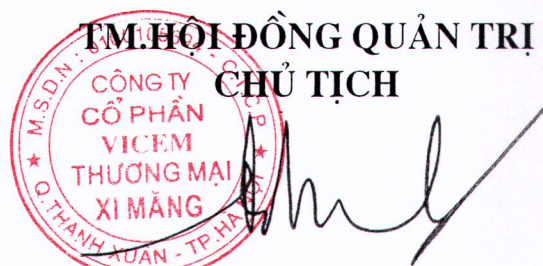 TM.HỘI ĐỒNG QUẢN TRỊ
CHỦ TỊCH
CÔNG TY
CỔ PHẦN
VICEM
THƯƠNG MẠI
XI MĂNG
M.S.D.N :
C.T.C.P
Q.THANH XUÂN - TP.HÀ NỘI